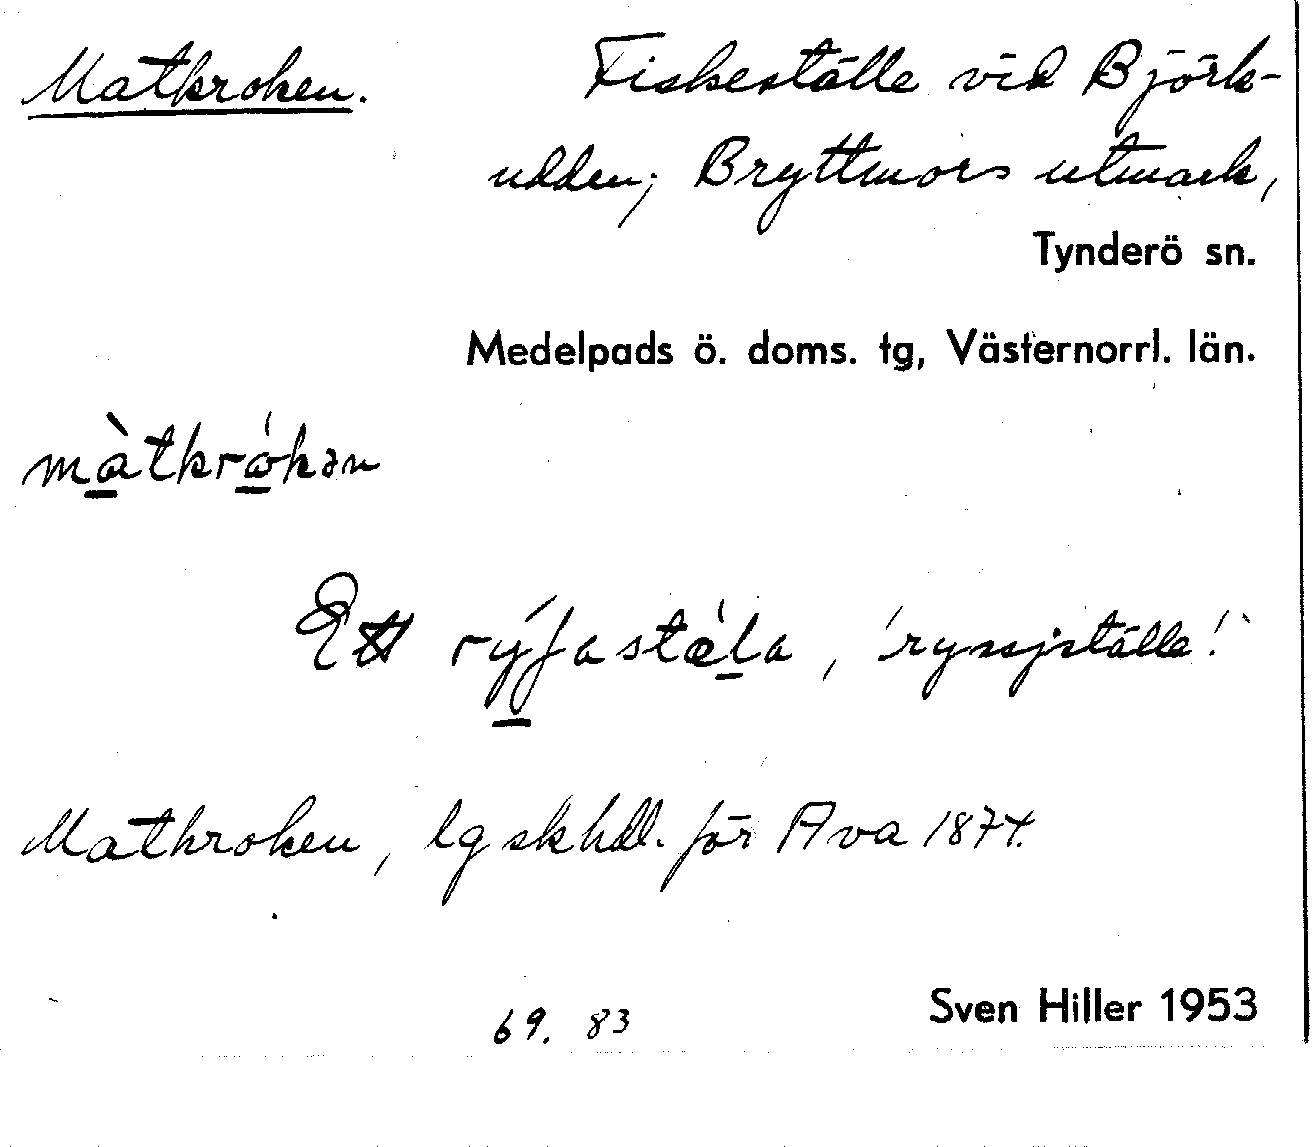 Matkroken. Fiskeställe vid Björk-
udden; Bryttmors utmark,
Tynderö sn.
Medelpads ö. doms. tg, Västernorrl. län.
màtkrókən
Ett rýʃastɛ́la, 'ryssjställe'.
Matkroken, lgskhdl. för Ava 1874.
69. 83 Sven Hiller 1953